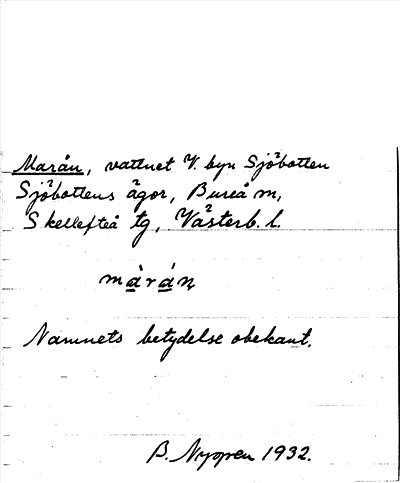 Marån, vattnet V. byn Sjöbotten
Sjöbottens ägor, Bureå m,
Skellefteå tg, Västerb. l.
màrán
Namnets betydelse obekant.
B. Nygren 1932.